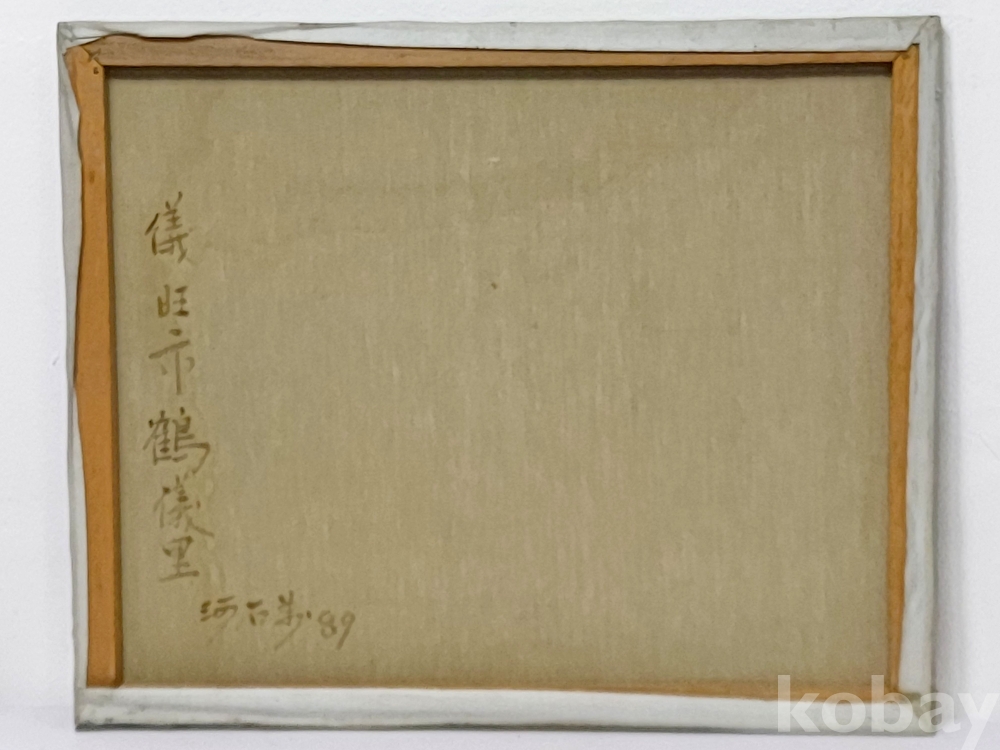 儀旺市鶴儀里
河 89
kobay